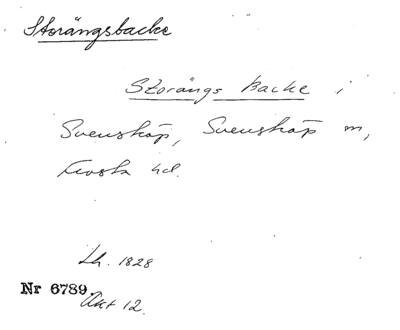 Storängsbacke
Storängs Backe i
Svensköp, Svensköp sn,
Frosta hd.
Lh. 1828
Nr 6789.
Akt 12.